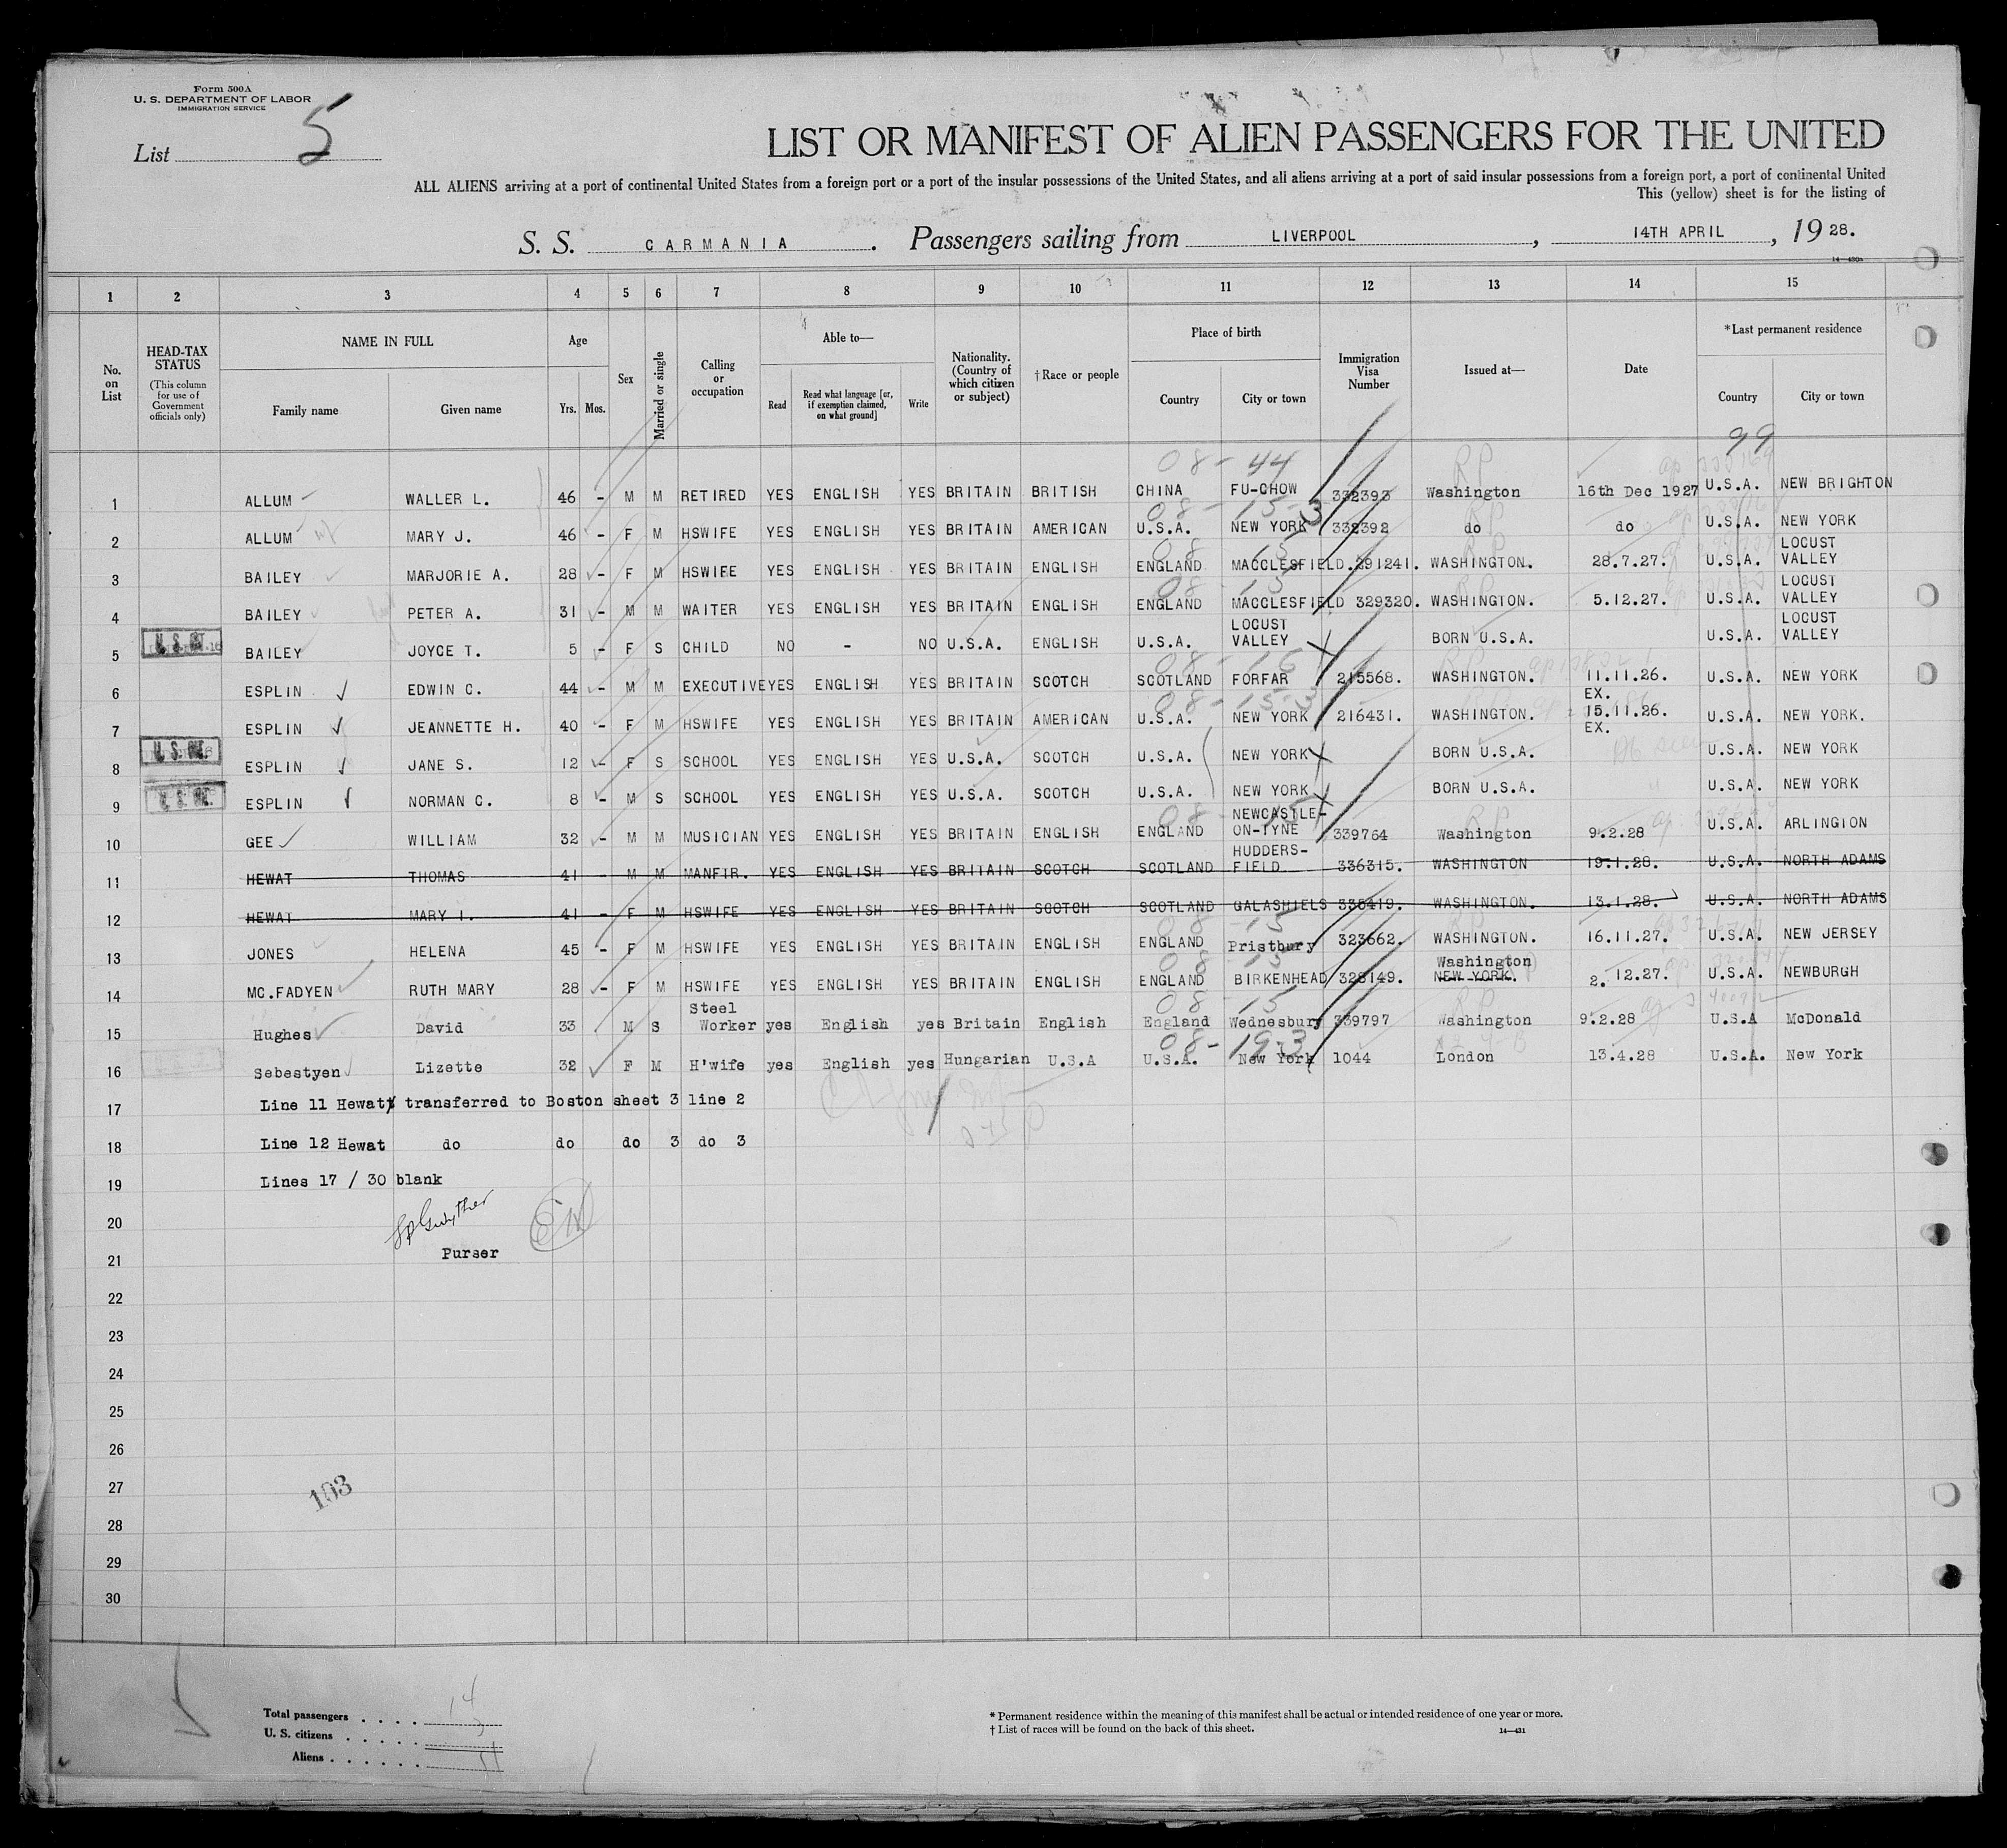 Form 500A
U. S. DEPARTMENT OF LABOR
IMMIGRATION SERVICE
List 5
LIST OR MANIFEST OF ALIEN PASSENGERS FOR THE UNITED
ALL ALIENS arriving at a port of continental United States from a foreign port or a port of the insular possessions of the United States, and all aliens arriving at a port of said insular possessions from a foreign port, a port of continental United
This (yellow) sheet is for the listing of
S. S. CARMANIA . Passengers sailing from LIVERPOOL , 14TH APRIL , 19 28.
14—430a
1 2 3 4 5 6 7 8 9 10 11 12 13 14 15
No. on List
HEAD-TAX STATUS (This column for use of Government officials only)
NAME IN FULL Family name Given name
Age Yrs. Mos.
Sex
Married or single
Calling or occupation
Able to— Read Read what language [or, if exemption claimed, on what ground] Write
Nationality. (Country of which citizen or subject)
† Race or people
Place of birth Country City or town
Immigration Visa Number
Issued at—
Date
*Last permanent residence Country City or town
99
08-44 RP
1 ALLUM WALLER L. 46 - M M RETIRED YES ENGLISH YES BRITAIN BRITISH CHINA FU-CHOW 332393 Washington 16th Dec 1927 U.S.A. NEW BRIGHTON
08-15-3 RP
2 ALLUM MARY J. 46 - F M HSWIFE YES ENGLISH YES BRITAIN AMERICAN U.S.A. NEW YORK 332392 do do U.S.A. NEW YORK
08 15 RP
3 BAILEY MARJORIE A. 28 - F M HSWIFE YES ENGLISH YES BRITAIN ENGLISH ENGLAND MACCLESFIELD. 291241. WASHINGTON. 28.7.27. U.S.A. LOCUST VALLEY
08-15 RP
4 BAILEY PETER A. 31 - M M WAITER YES ENGLISH YES BRITAIN ENGLISH ENGLAND MACCLESFIELD 329320. WASHINGTON. 5.12.27. U.S.A. LOCUST VALLEY
5 BAILEY JOYCE T. 5 - F S CHILD NO - NO U.S.A. ENGLISH U.S.A. LOCUST VALLEY BORN U.S.A. U.S.A. LOCUST VALLEY
08-16 RP
6 ESPLIN EDWIN C. 44 - M M EXECUTIVE YES ENGLISH YES BRITAIN SCOTCH SCOTLAND FORFAR 215568. WASHINGTON. 11.11.26. EX. U.S.A. NEW YORK
08-15-3
7 ESPLIN JEANNETTE H. 40 - F M HSWIFE YES ENGLISH YES BRITAIN AMERICAN U.S.A. NEW YORK 216431. WASHINGTON. 15.11.26. EX. U.S.A. NEW YORK.
8 ESPLIN JANE S. 12 - F S SCHOOL YES ENGLISH YES U.S.A. SCOTCH U.S.A. NEW YORK BORN U.S.A. U.S.A. NEW YORK
9 ESPLIN NORMAN C. 8 - M S SCHOOL YES ENGLISH YES U.S.A. SCOTCH U.S.A. NEW YORK BORN U.S.A. U.S.A. NEW YORK
08-15 RP
10 GEE WILLIAM 32 - M M MUSICIAN YES ENGLISH YES BRITAIN ENGLISH ENGLAND NEWCASTLE-ON-TYNE 339764 Washington 9.2.28 U.S.A. ARLINGION
11 HEWAT THOMAS 41 - M M MANFTR. YES ENGLISH YES BRITAIN SCOTCH SCOTLAND HUDDERS-FIELD 336315. WASHINGTON 19.1.28. U.S.A. NORTH ADAMS
12 HEWAT MARY I. 41 - F M HSWIFE YES ENGLISH YES BRITAIN SCOTCH SCOTLAND GALASHIELS WASHINGTON. 13.1.28. U.S.A. NORTH ADAMS
08 15
13 JONES HELENA 45 - F M HSWIFE YES ENGLISH YES BRITAIN ENGLISH ENGLAND Pristbury 323662. WASHINGTON. 16.11.27. U.S.A. NEW JERSEY
08 15 RP
14 MC.FADYEN RUTH MARY 28 - F M HSWIFE YES ENGLISH YES BRITAIN ENGLISH ENGLAND BIRKENHEAD 328149. Washington NEW YORK. 2.12.27. U.S.A. NEWBURGH
08-15 RP
15 Hughes David 33 M S Steel Worker yes English yes Britain English England Wednesbury 339797 Washington 9.2.28 U.S.A McDonald
08-19-3
16 Sebestyen Lizette 32 F M H'wife yes English yes Hungarian U.S.A U.S.A. New York 1044 London 13.4.28 U.S.A. New York
17 Line 11 Hewat transferred to Boston sheet 3 line 2
18 Line 12 Hewat do do do 3 do 3
19 Lines 17 / 30 blank
20
21 Purser
22
23
24
25
26
27
103
28
29
30
Total passengers . . . . 14
U. S. citizens . . . . . 3
Aliens . . . . . . 11
* Permanent residence within the meaning of this manifest shall be actual or intended residence of one year or more.
† List of races will be found on the back of this sheet.
14—431